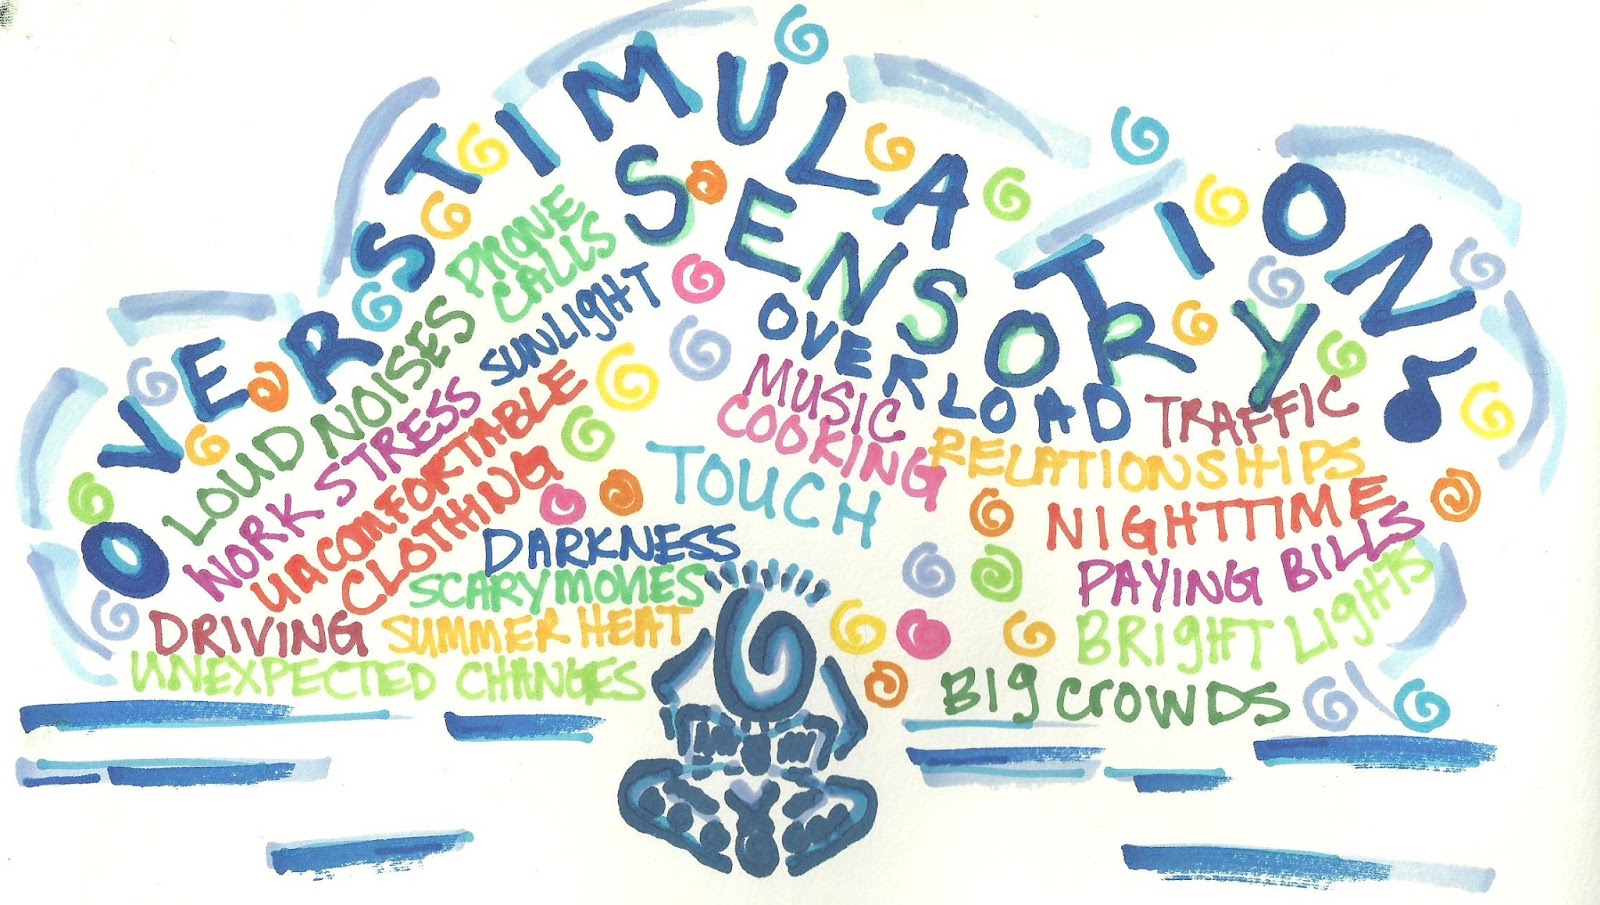 OVERSTIMULATION
SENSORY
OVERLOAD
PHONE
CALLS
SUNLIGHT
LOUD NOISES
WORK STRESS
UNCOMFORTABLE
CLOTHING
DARKNESS
SCARY MOVIES
DRIVING
SUMMER HEAT
UNEXPECTED CHANGES
MUSIC
COOKING
TOUCH
TRAFFIC
RELATIONSHIPS
NIGHTTIME
PAYING BILLS
BRIGHT LIGHTS
BIG CROWDS